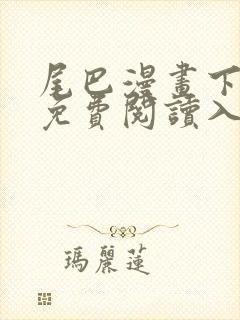 尾巴漫畫下
免費閱讀入
瑪麗蓮